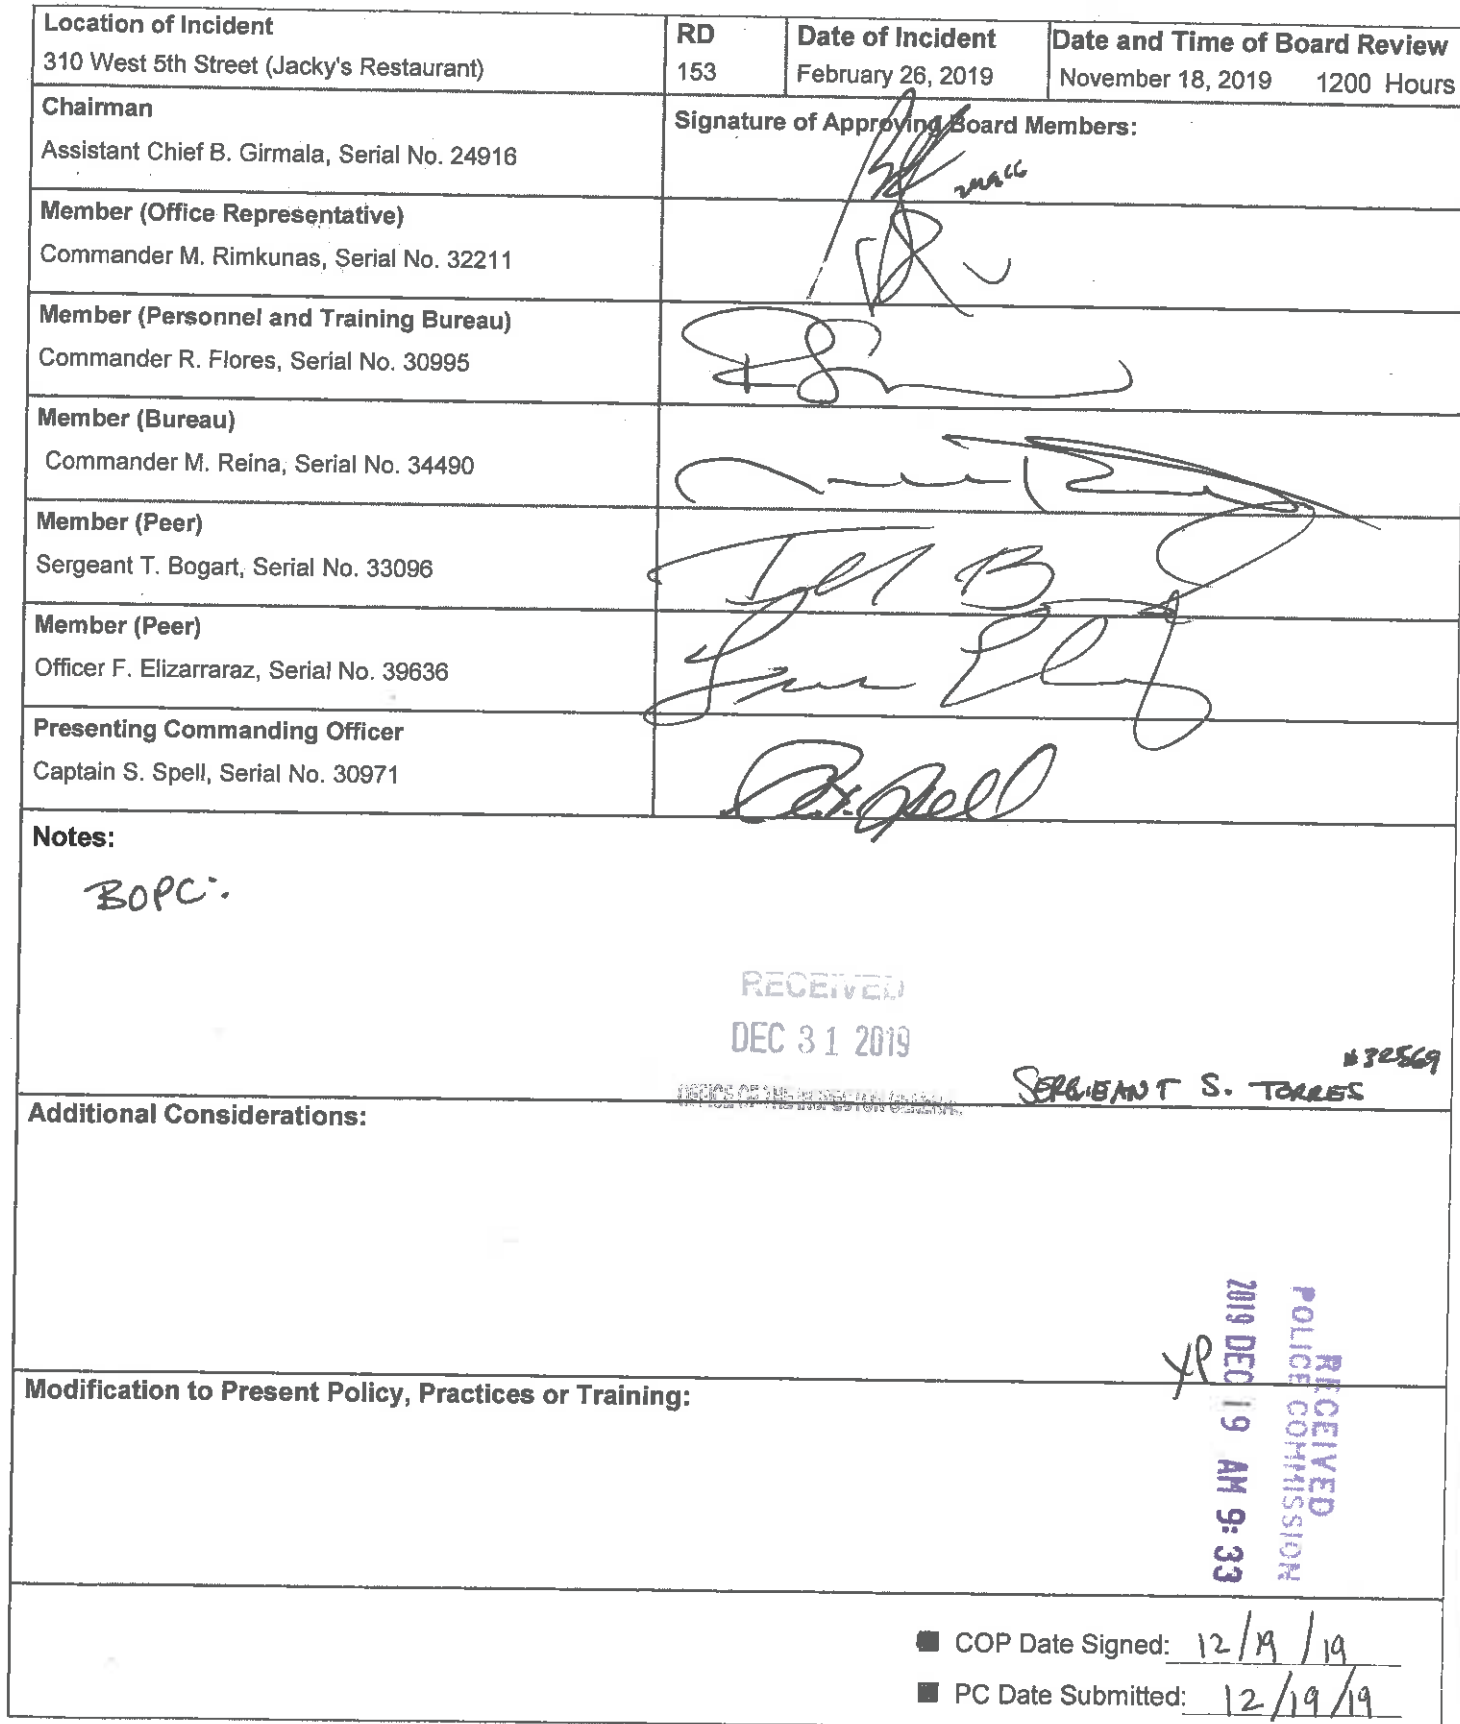 Location of Incident
310 West 5th Street (Jacky's Restaurant)
RD
153
Date of Incident
February 26, 2019
Date and Time of Board Review
November 18, 2019 1200 Hours
Chairman
Assistant Chief B. Girmala, Serial No. 24916
Signature of Approving Board Members:
Member (Office Representative)
Commander M. Rimkunas, Serial No. 32211
Member (Personnel and Training Bureau)
Commander R. Flores, Serial No. 30995
Member (Bureau)
Commander M. Reina, Serial No. 34490
Member (Peer)
Sergeant T. Bogart, Serial No. 33096
Member (Peer)
Officer F. Elizarraraz, Serial No. 39636
Presenting Commanding Officer
Captain S. Spell, Serial No. 30971
Notes:
BOPC:
RECEIVED
DEC 31 2019
OFFICE OF THE INSPECTOR GENERAL
#32569
SERGEANT S. TORRES
Additional Considerations:
RECEIVED
POLICE COMMISSION
2019 DEC 19 AM 9:33
YP
Modification to Present Policy, Practices or Training:
COP Date Signed: 12/19/19
PC Date Submitted: 12/19/19